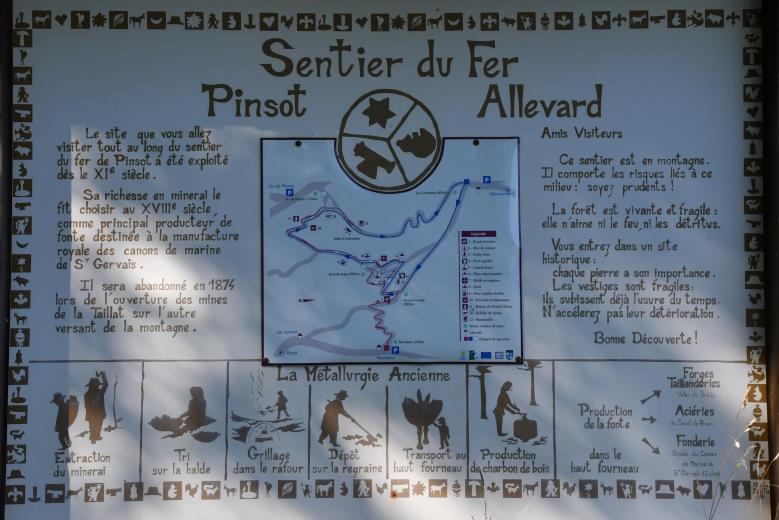 Sentier du Fer
Pinsot Allevard
Le site que vous allez
visiter tout au long du sentier
du fer de Pinsot a été exploité
dès le XIe siècle.
Sa richesse en minerai le
fit choisir au XVIIIe siècle
comme principal producteur de
fonte destinée à la manufacture
royale des canons de marine
de St Gervais.
Il sera abandonné en 1874
lors de l'ouverture des mines
de la Taillat sur l'autre
versant de la montagne.
Amis Visiteurs
Ce sentier est en montagne.
Il comporte les risques liés à ce
milieu : soyez prudents !
La forêt est vivante et fragile :
elle n'aime ni le feu, ni les détritus.
Vous entrez dans un site
historique :
chaque pierre a son importance.
Les vestiges sont fragiles:
ils subissent déjà l'usure du temps.
N'accélérez pas leur détérioration.
Bonne Découverte !
P
P
Légende
Pinsot
P
La Métallurgie Ancienne
Extraction
du minerai
Tri
sur la halde
Grillage
dans le rafour
Dépôt
sur la regraine
Transport au
haut fourneau
Production
de charbon de bois
Production
de la fonte
dans le
haut fourneau
Forges
Taillanderies
Vallée du Bréda
Aciéries
du Canton de Rives
Fonderie
Royale des Canons
de Marine de
St Gervais (Isère)